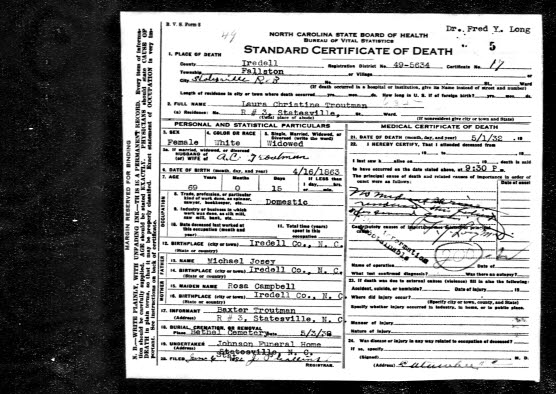 B. V. S. Form 8
49
NORTH CAROLINA STATE BOARD OF HEALTH
BUREAU OF VITAL STATISTICS
STANDARD CERTIFICATE OF DEATH
Dr. Fred Y. Long
5
1. PLACE OF DEATH
County Iredell Registration District No. 49-5634 Certificate No. 17
Township Fallston or Village
City Statesville R 3 No. St., Ward
(If death occurred in a hospital or institution, give its Name instead of street and number)
Length of residence in city or town where death occurred yrs. mos. ds. How long in U. S. if of foreign birth? yrs. mos. ds.
2. FULL NAME Laura Christine Troutman
(a) Residence: No. R # 3, Statesville, St., Ward.
(Usual place of abode) (If nonresident give city or town and State)
PERSONAL AND STATISTICAL PARTICULARS
3. SEX 4. COLOR OR RACE 5. Single, Married, Widowed, or Divorced (write the word)
Female White Widowed
5a. If married, widowed, or divorced
HUSBAND of
(or) WIFE of A.C. Troutman
6. DATE OF BIRTH (month, day, and year) 4/16/1863
7. AGE Years Months Days If LESS than 1 day, hrs. or min.
69 0 15
OCCUPATION
8. Trade, profession, or particular kind of work done, as spinner, sawyer, bookkeeper, etc. Domestic
9. Industry or business in which work was done, as silk mill, saw mill, bank, etc.
10. Date deceased last worked at this occupation (month and year)
11. Total time (years) spent in this occupation
12. BIRTHPLACE (city or town) Iredell Co., N. C.
(State or country)
FATHER
13. NAME Michael Josey
14. BIRTHPLACE (city or town) Iredell Co., N. C.
(State or country)
MOTHER
15. MAIDEN NAME Rosa Campbell
16. BIRTHPLACE (city or town) Iredell Co., N. C.
(State or country)
17. INFORMANT Baxter Troutman
(Address) R # 3, Statesville, N. C.
18. BURIAL, CREMATION, OR REMOVAL
Place Bethel Cemetery Date 5/3/32
19. UNDERTAKER Johnson Funeral Home
(Address) Statesville, N. C.
20. FILED
REGISTRAR.
MEDICAL CERTIFICATE OF DEATH
21. DATE OF DEATH (month, day, and year) 5/1/32 , 19
22. I HEREBY CERTIFY, That I attended deceased from
, 19 , to , 19
I last saw h alive on , 19 ; death is said
to have occurred on the date stated above, at 9:30 P. m.
The principal cause of death and related causes of importance in order of onset were as follows: Date of onset
Contributory causes of importance not related to principal cause:
Name of operation Date of
What test confirmed diagnosis? Was there an autopsy?
23. If death was due to external causes (violence) fill in also the following:
Accident, suicide, or homicide? Date of injury , 19
Where did injury occur?
(Specify city or town, county, and State)
Specify whether injury occurred in industry, in home, or in public place.
Manner of injury
Nature of injury
24. Was disease or injury in any way related to occupation of deceased?
If so, specify
(Signed) M. D.
(Address)
MARGIN RESERVED FOR BINDING
N. B.—WRITE PLAINLY, WITH UNFADING INK—THIS IS A PERMANENT RECORD. Every item of information should be carefully supplied. AGE should be stated EXACTLY. PHYSICIANS should state CAUSE OF DEATH in plain terms, so that it may be properly classified. Exact statement of OCCUPATION is very important.